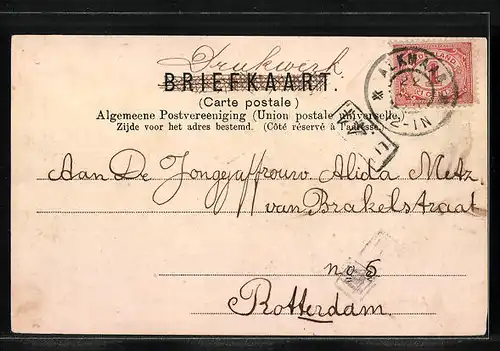 Drukwerk
BRIEFKAART.
(Carte postale)
Algemeene Postvereeniging (Union postale universelle.)
Zijde voor het adres bestemd. (Côté réservé à l'adresse.)
ALKMAAR
Aan De Jongejaffrouw. Alida Metz
van Brakelstraat
no 5
Rotterdam.